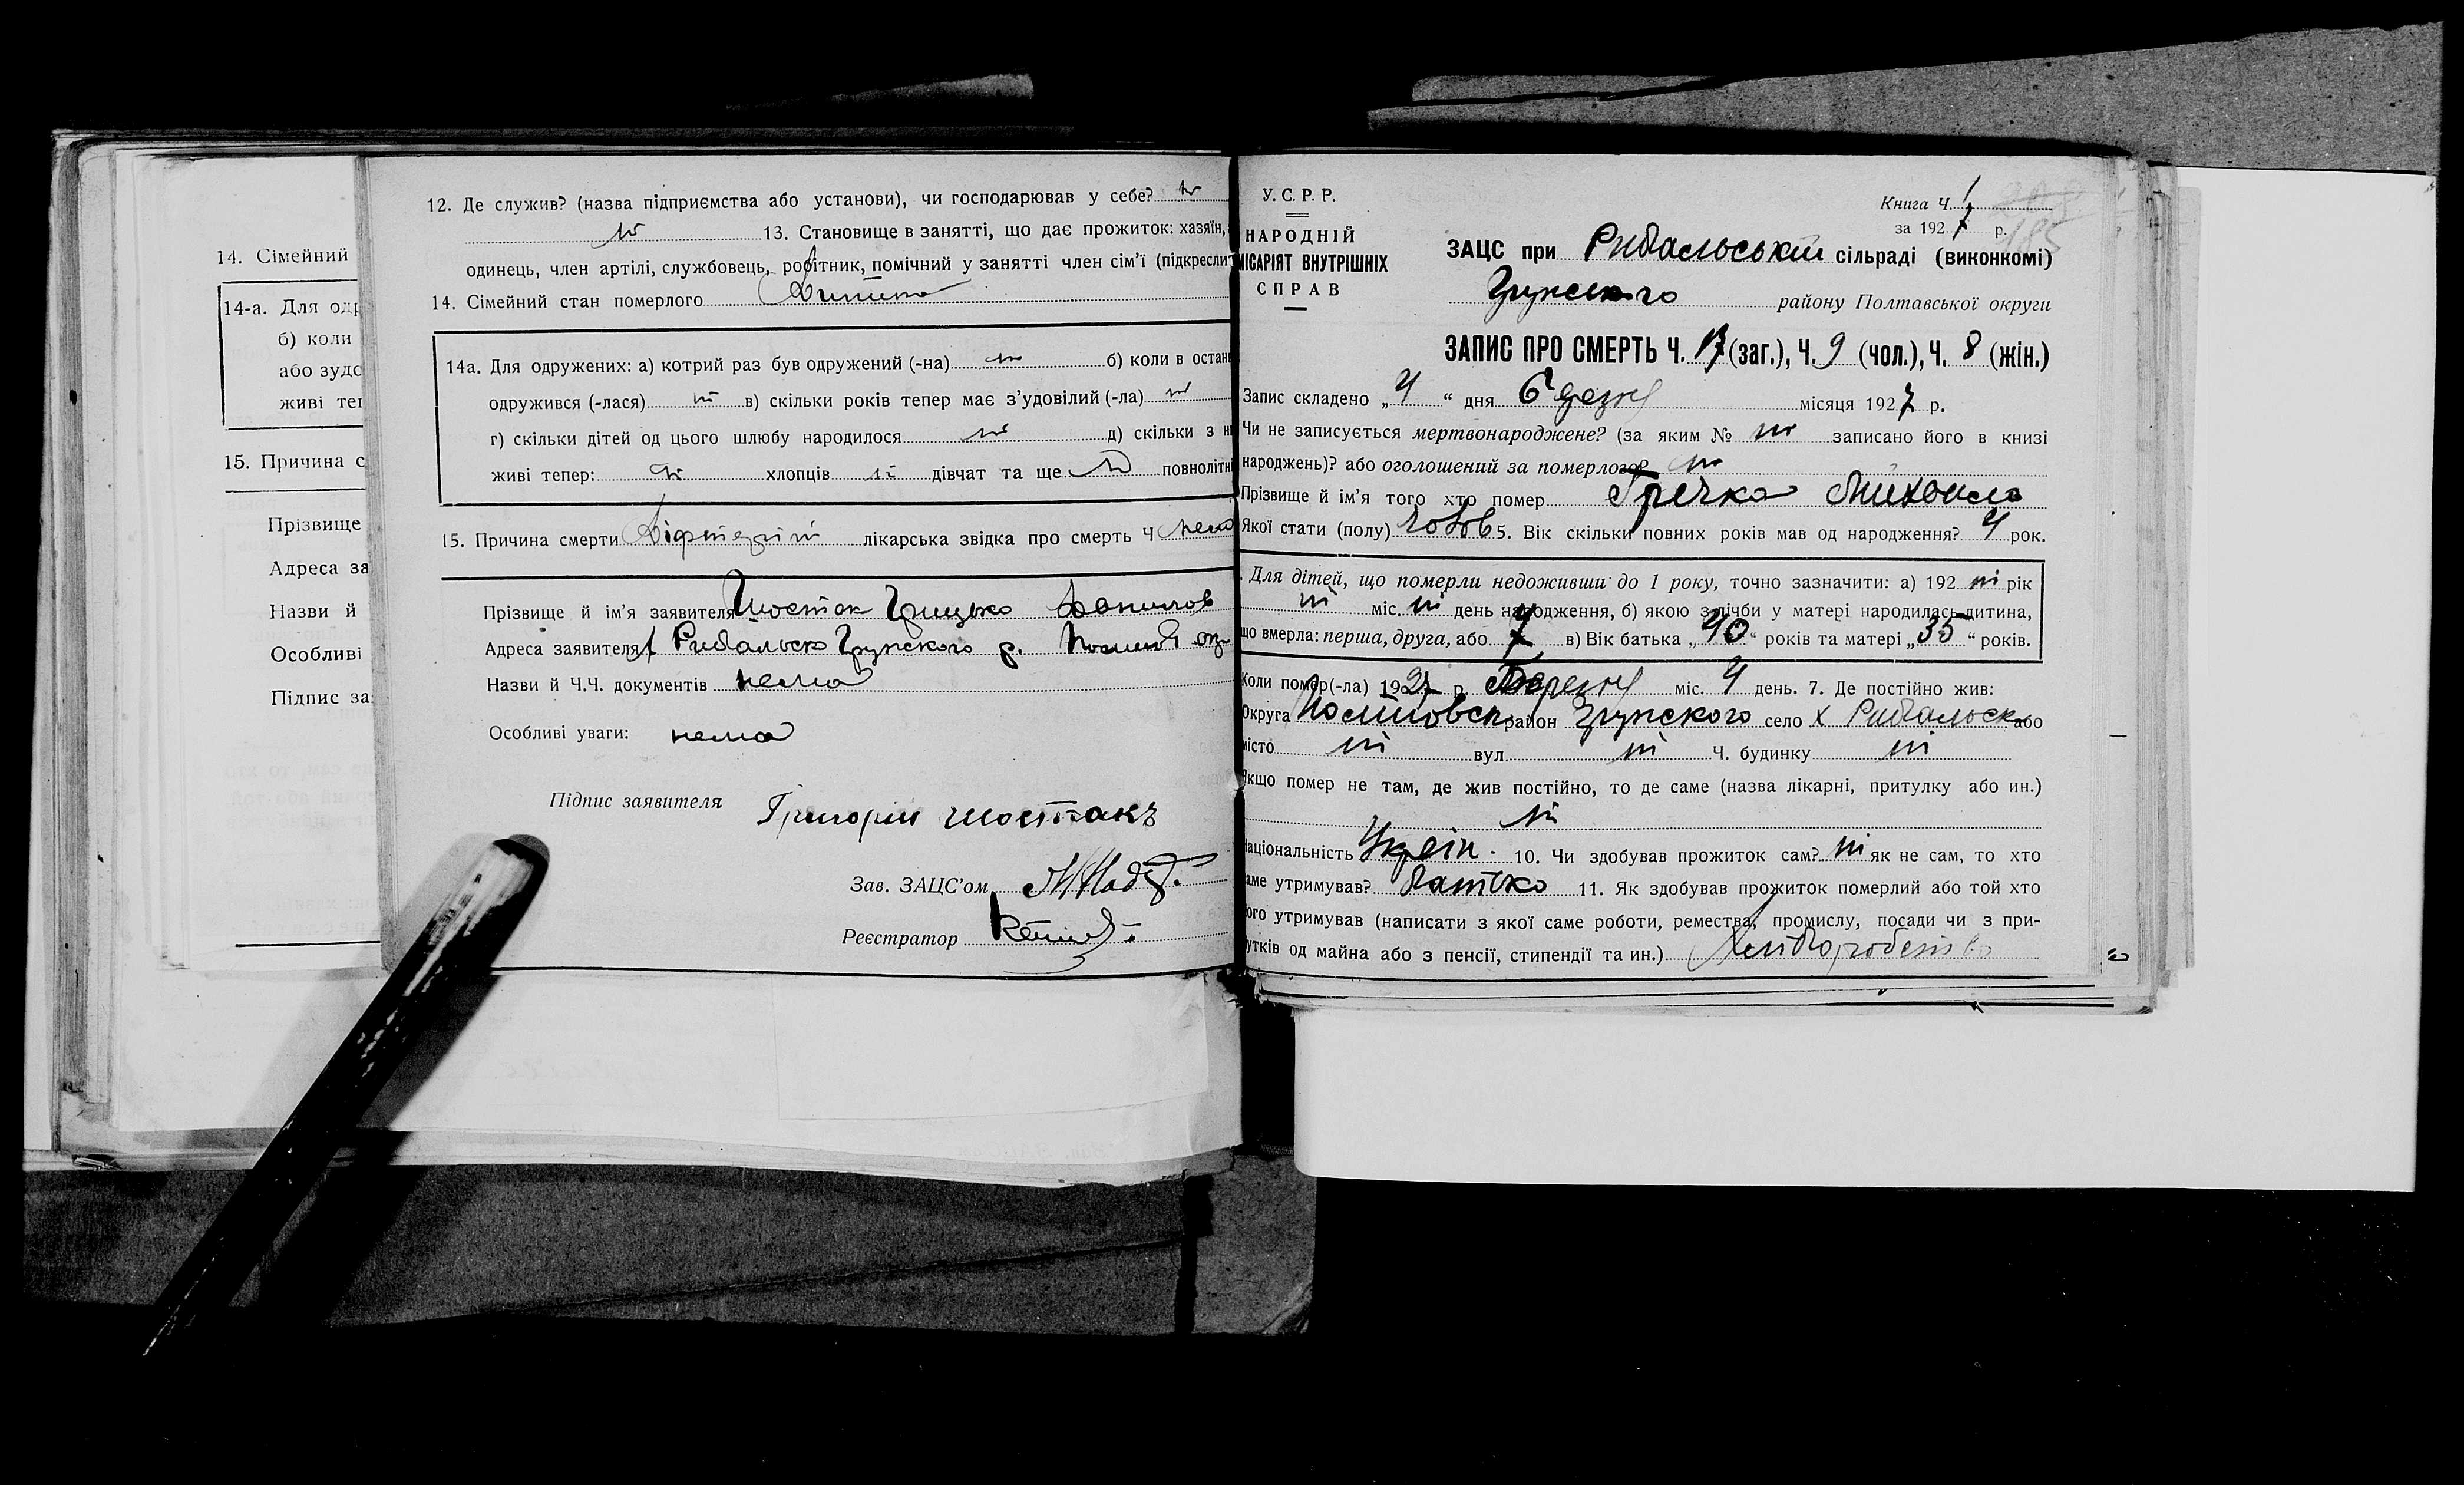 14. Сімейний
14-а. Для одр
б) коли
або зудо
живі теп
15. Причина с
Прізвище
Адреса за
Назви й
Особливі
Підпис за
12. Де служив? (назва підприємства або установи), чи господарював у себе? ні
ні 13. Становище в занятті, що дає прожиток: хазяїн,
одинець, член артілі, службовець, робітник, помічний у занятті член сім'ї (підкреслит
14. Сімейний стан померлого Дитина
14а. Для одружених: а) котрий раз був одружений (-на) ні б) коли в остан
одружився (-лася) ні в) скільки років тепер має з'удовілий (-ла) ні
г) скільки дітей од цього шлюбу народилося ні д) скільки з ни
живі тепер: ні хлопців ні дівчат та ще ні повнолітні
15. Причина смерти Діфтерія лікарська звідка про смерть Ч нема
Прізвище й ім'я заявителя Шостак Грицько Данилов
Адреса заявителя х Рибальско Грунского р. Полтав ок
Назви й Ч.Ч. документів нема
Особливі уваги: нема
Підпис заявителя Григорій Шостакъ
Зав. ЗАЦС'ом
Реєстратор
У. С. Р. Р.
НАРОДНІЙ
МІСАРІЯТ ВНУТРІШНІХ
СПРАВ
Книга Ч. 1
за 1927 р.
185
ЗАЦС при Рибальській сільраді (виконкомі)
Грунского району Полтавської округи
ЗАПИС ПРО СМЕРТЬ Ч. 17 (заг.), Ч. 9 (чол.), Ч. 8 (жін.)
Запис складено „4" дня Березня місяця 1927 р.
Чи не записується мертвонароджене? (за яким № ні записано його в книзі
народжень)? або оголошений за померлого? ні
Прізвище й ім'я того хто помер Гречка Михайло
Якої стати (полу) чолов 5. Вік скільки повних років мав од народження? 4 рок.
. Для дітей, що померли недоживши до 1 року, точно зазначити: а) 192 ні рік
ні міс. ні день народження, б) якою з лічби у матері народилась дитина,
що вмерла: перша, друга, або 7 в) Вік батька „40" років та матері „35" років.
Коли помер(-ла) 1927 р. Березня міс. 4 день. 7. Де постійно жив:
Округа Полтавськ район Грунского село х Рибальско або
місто ні вул ні Ч. будинку ні
Якщо помер не там, де жив постійно, то де саме (назва лікарні, притулку або ин.)
ні
аціональність Україн. 10. Чи здобував прожиток сам? ні як не сам, то хто
аме утримував? Батько 11. Як здобував прожиток померлий або той хто
ого утримував (написати з якої саме роботи, ремества, промислу, посади чи з при-
утків од майна або з пенсії, стипендії та ин.) Хліборобство